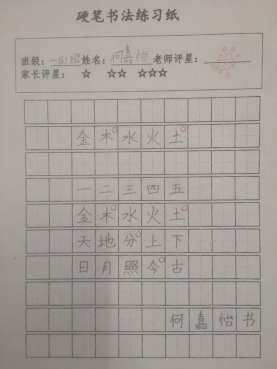 硬笔书法练习纸
班级：一(2)班姓名：何嘉怡 老师评星：
家长评星： ☆ ☆☆ ☆☆☆
金木水火土
一二三四五
金木水火土
天地分上下
日月照今古
何嘉怡书